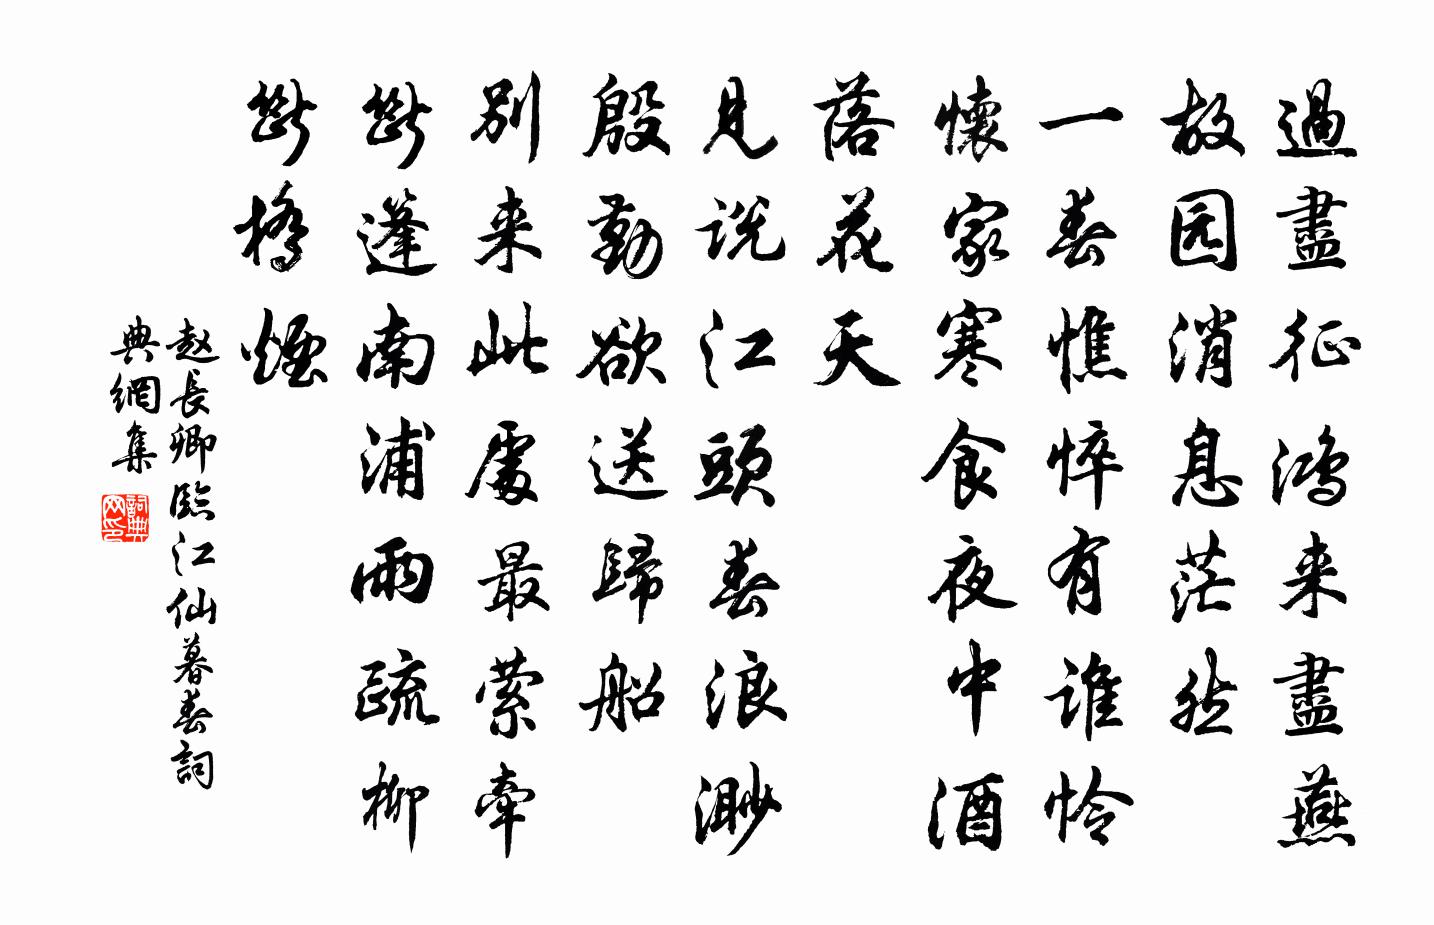 過盡征鴻来盡燕
故园消息茫然
一春憔悴有誰怜
懷家寒食夜中酒
落花天
見説江頭春浪渺
殷勤欲送歸船
别来此處最萦牽
斷蓬南浦雨疏柳
斷橋煙
赵長卿臨江仙暮春詞
典網集
詞典
网印